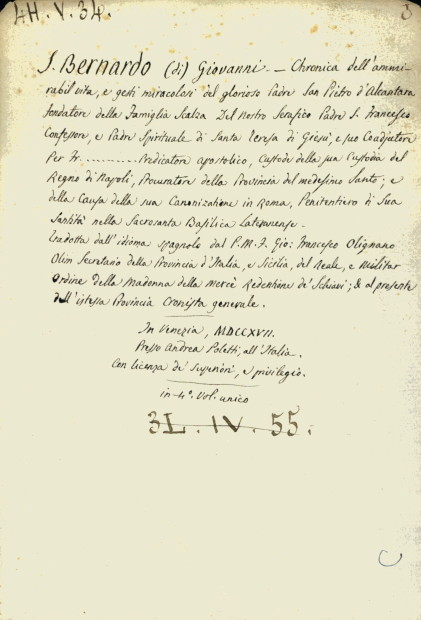 4H.V.34.
S. Bernardo (di) Giovanni. — Chronica dell'ammi-
rabil vita, e gesti miracolosi del glorioso Padre San Pietro d'Alcantara
fondatore della Famiglia Scalza Del Nostro Serafico Padre S. Francesco
Confessore, e Padre Spirituale di Santa Teresa di Giesù, e suo Coadjutore
Per Fr. ........... Predicatore apostolico, Custode della sua Custodia del
Regno di Napoli, Procuratore della Provincia del medesimo Santo; e
della Causa della sua Canonizatione in Roma, Penitentiero di Sua
Santità nella Sacrosanta Basilica Lateranense.
Tradotta dall'idioma spagnolo dal P.M.F. Gio: Francesco Olignano
Olim Secretario della Provincia d'Italia, e Sicilia, del Reale, e Militar
Ordine della Madonna della Mercè Redentione de' Schiavi; & al presente
dell'istessa Provincia Cronista generale.
In Venezia, MDCCXVII.
Presso Andrea Poletti, all'Italia.
Con licenza de' Superiori, e privilegio.
in 4°. Vol. unico
3L.IV.55.